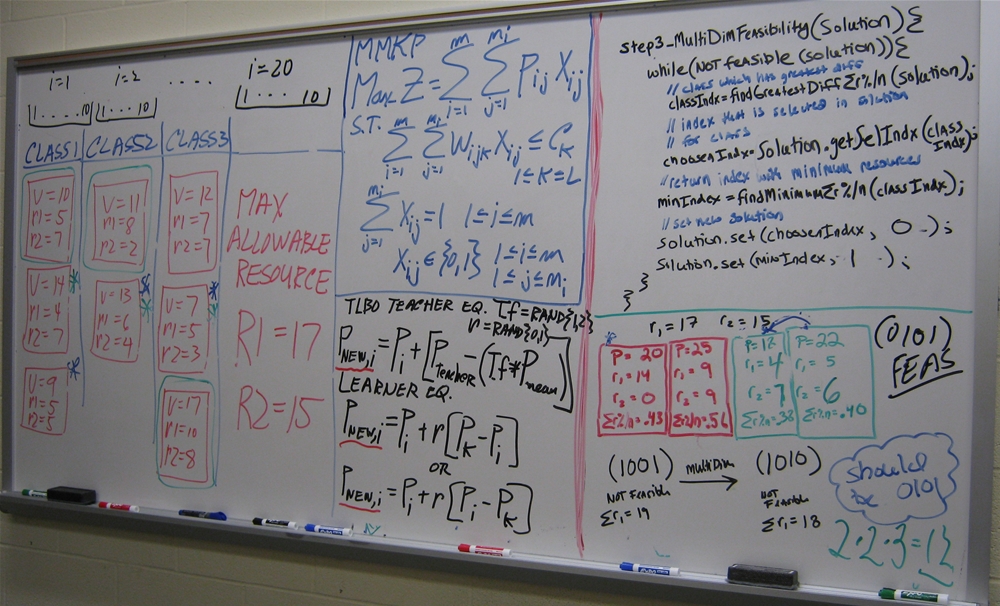 i=1 i=2 .... i=20
1....10 1...10 1....10
CLASS1 CLASS2 CLASS3
V=10
r1=5
r2=7
V=14
r1=4
r2=7
V=9
r1=5
r2=5
V=11
r1=8
r2=2
V=13
r1=6
r2=4
V=12
r1=7
r2=7
V=7
r1=5
r2=3
V=17
r1=10
r2=8
MAX
ALLOWABLE
RESOURCE
R1=17
R2=15
MMKP
Max Z = Σ_{i=1}^{m} Σ_{j=1}^{mi} Pij Xij
S.T.
Σ_{i=1}^{m} Σ_{j=1}^{mi} Wijk Xij ≤ Ck
1≤K=L
Σ_{j=1}^{mi} Xij = 1 1≤i≤m
Xij ∈ {0,1} 1≤i≤m
1≤j≤mi
TLBO TEACHER EQ. Tf=RAND{1,2}
r=RAND{0,1}
P NEW,i = Pi + [P TEACHER - (Tf*P mean)]
LEARNER EQ.
P NEW,i = Pi + r[PK - Pi]
OR
P NEW,i = Pi + r[Pi - PK]
step3_MultiDimFeasibility(Solution){
while(NOT feasible (solution)){
// class which has greatest diff
classIndx=findGreatestDiffΣr%/n(solution);
// index that is selected in solution
// for class
choosenIndx=Solution.getSelIndx(class Indx);
//return index with minimum resources
minIndex=findMinimumΣr%/n(classIndx);
// set new solution
solution.set(choosenIndex, 0 );
Solution.set(minIndex, 1 );
}
}
r1=17 r2=15
P=20
r1=14
r2=0
Σr%/n=.43
P=25
r1=9
r2=9
Σr%/n=.56
P=12
r1=4
r2=7
Σr%/n=.38
P=22
r1=5
r2=6
Σr%/n=.40
(0101)
FEAS
(1001) MultiDim (1010)
NOT Feasible
Σr1=19
NOT Feasible
Σr1=18
should
be 0101
2·2·3=12